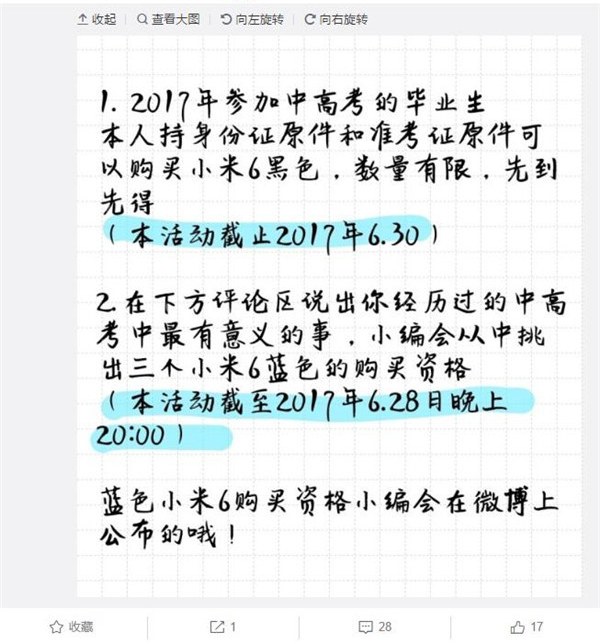 收起 查看大图 向左旋转 向右旋转
1. 2017年参加中高考的毕业生
本人持身份证原件和准考证原件可
以购买小米6黑色，数量有限，先到
先得
（本活动截止2017年6.30）
2.在下方评论区说出你经历过的中高
考中最有意义的事，小编会从中挑
出三个小米6蓝色的购买资格
（本活动截至2017年6.28日晚上
20:00）
蓝色小米6购买资格小编会在微博上
公布的哦！
收藏 1 28 17